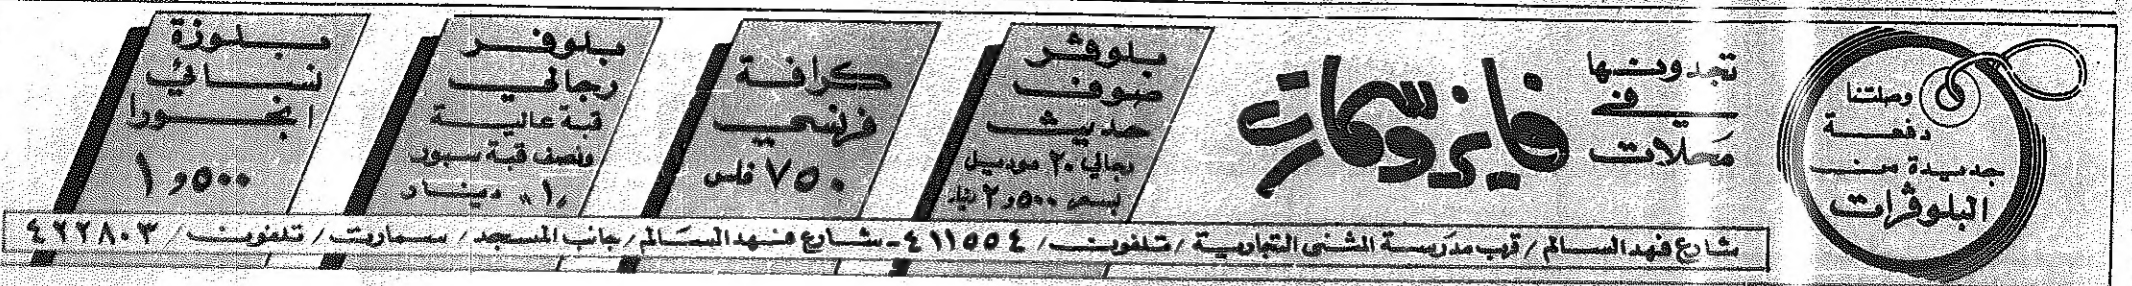 وصلتنا
دفعة
جديدة من
البلوفرات
تجدونها
في
محلات
فايز وسمارت
بلوفر
صوف
حديث
رجالي ٢٠ موديل
بسعر ٢٫٥٠٠ دينار
كرافة
فرنسي
٧٥٠ فلس
بلوفر
رجالي
قبة عالية
ونصف قبة سبور
١٫ دينار
بلوزة
نسائي
انجورا
١٫٥٠٠
شارع فهد السالم / قرب مدرسة المثنى التجارية / تلفون / ٤١١٥٥٤ - شارع فهد السالم / جانب المسجد / سمارت / تلفون / ٤٢٢٨٠٣